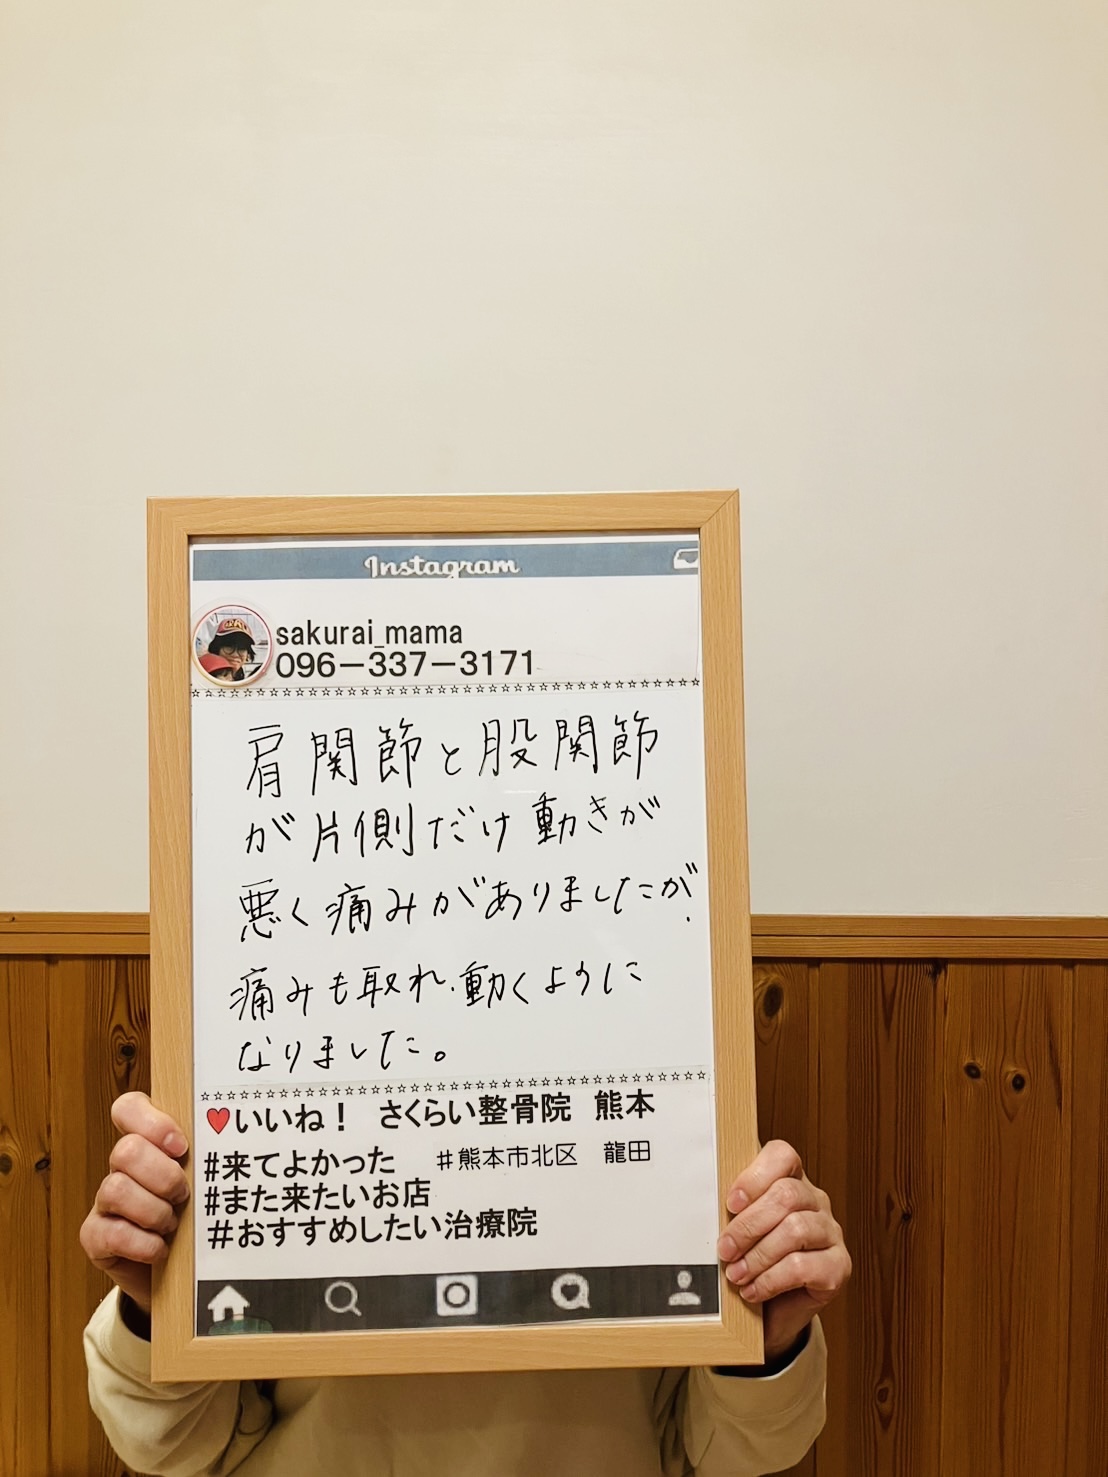 Instagram
sakurai_mama
096-337-3171
☆☆☆☆☆☆☆☆☆☆☆☆☆☆☆☆☆☆☆☆☆☆☆☆☆☆☆☆☆☆☆☆☆☆☆☆☆☆
肩関節と股関節
が片側だけ動きが
悪く痛みがありましたが、
痛みも取れ、動くように
なりました。
☆☆☆☆☆☆☆☆☆☆☆☆☆☆☆☆☆☆☆☆☆☆☆☆☆☆☆☆☆☆☆☆☆☆☆☆☆☆
♥いいね！ さくらい整骨院 熊本
#来てよかった #熊本市北区 龍田
#また来たいお店
#おすすめしたい治療院